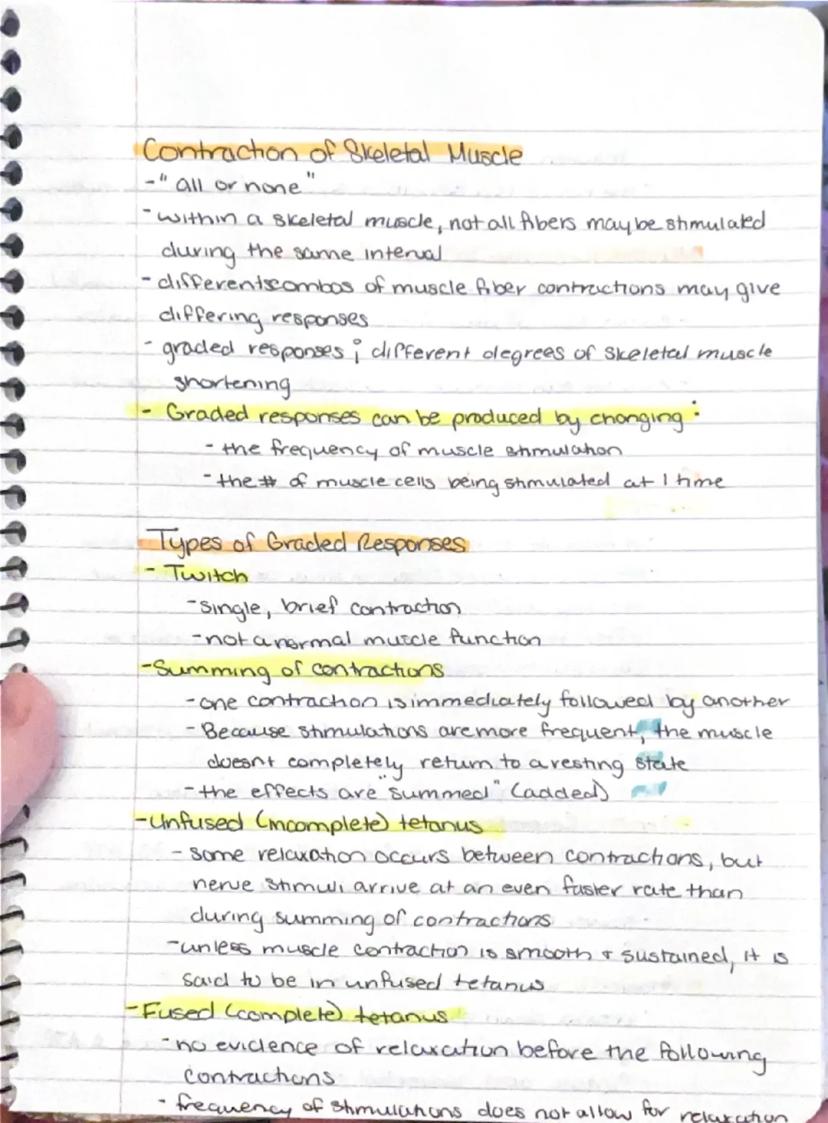 Contraction of Skeletal Muscle
- "all or none"
- within a skeletal muscle, not all fibers may be stimulated
during the same interval
- different combos of muscle fiber contractions may give
differing responses
- graded responses; different degrees of skeletal muscle
shortening
- Graded responses can be produced by changing:
- the frequency of muscle stimulation
- the # of muscle cells being stimulated at 1 time
Types of Graded Responses
- Twitch
- single, brief contraction
- not a normal muscle function
- Summing of contractions
- one contraction is immediately followed by another
- Because stimulations are more frequent, the muscle
doesnt completely return to a resting state
- the effects are "summed" (added)
- Unfused (incomplete) tetanus
- some relaxation occurs between contractions, but
nerve stimuli arrive at an even faster rate than
during summing of contractions
- unless muscle contraction is smooth & sustained, it is
said to be in unfused tetanus
- Fused (complete) tetanus
- no evidence of relaxation before the following
contractions
- frequency of stimulations does not allow for relaxation